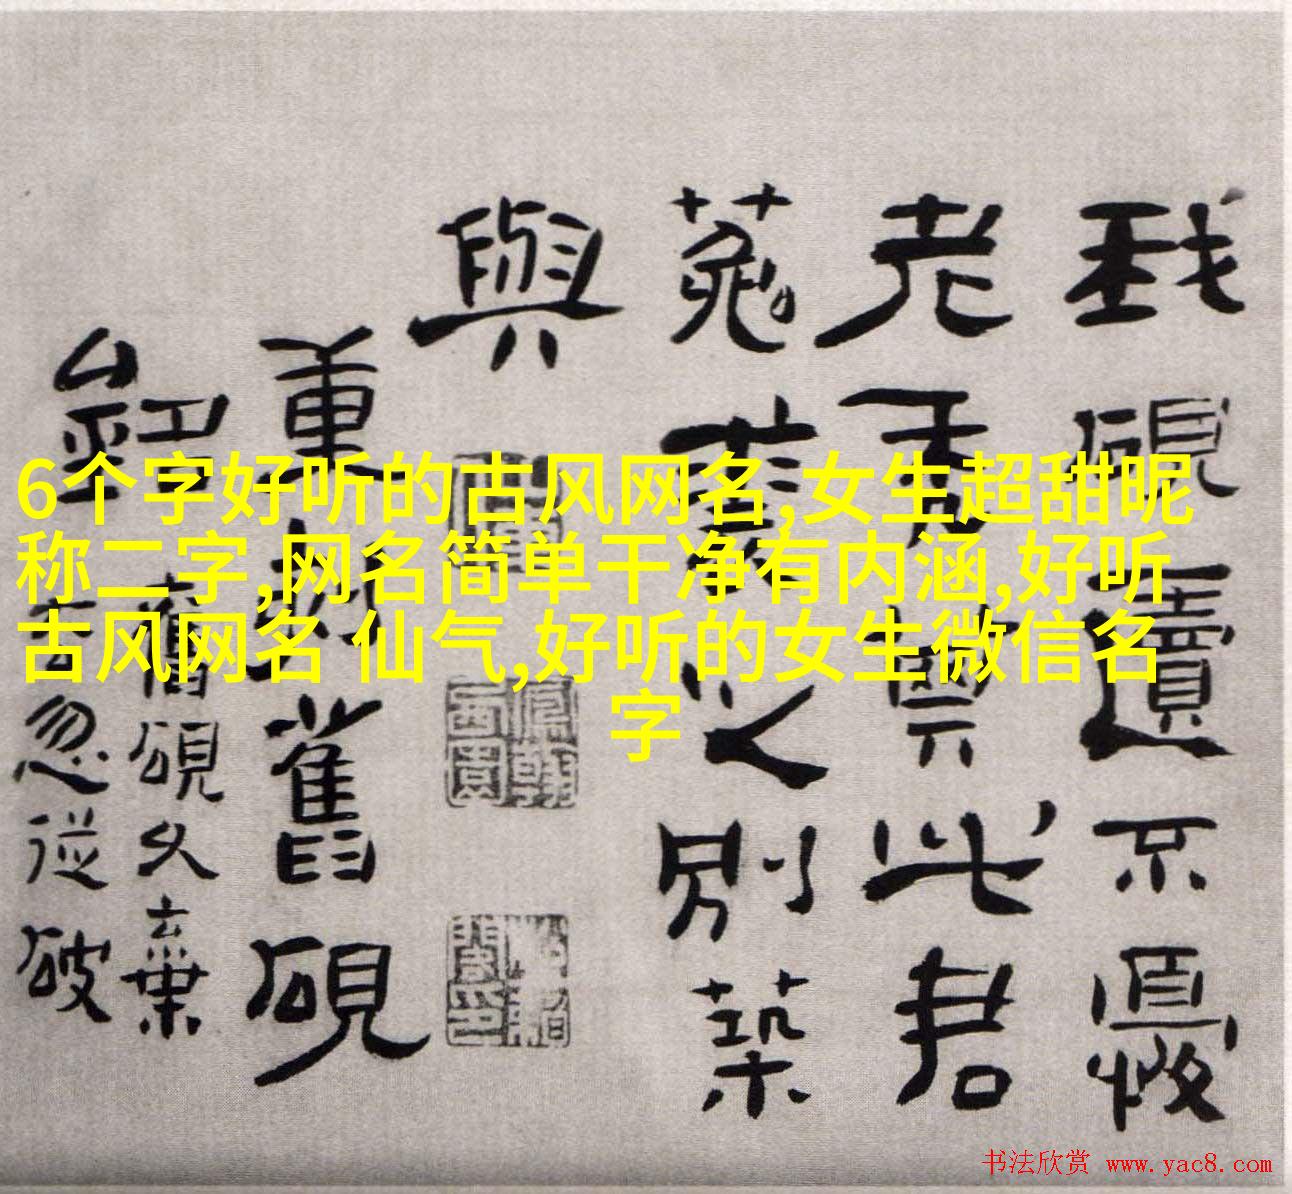 6个字好听的古风网名,女生超甜昵
称二字,网名简单干净有内涵,好听
古风网名 仙气,好听的女生微信名
字
我硯遺不憂
老此君
菟裘之別築
與
重舊硯
舊硯久棄
忽從破
书法欣赏 www.yac8.com